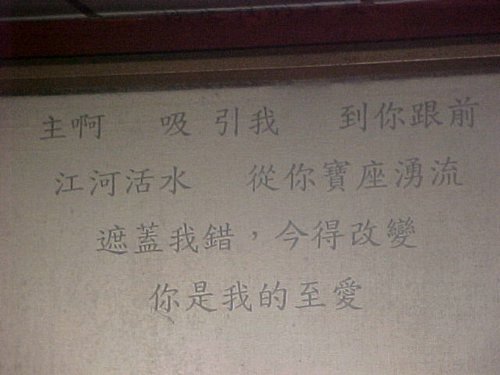 主啊 吸引我 到你跟前
江河活水 從你寶座湧流
遮蓋我錯，今得改變
你是我的至愛